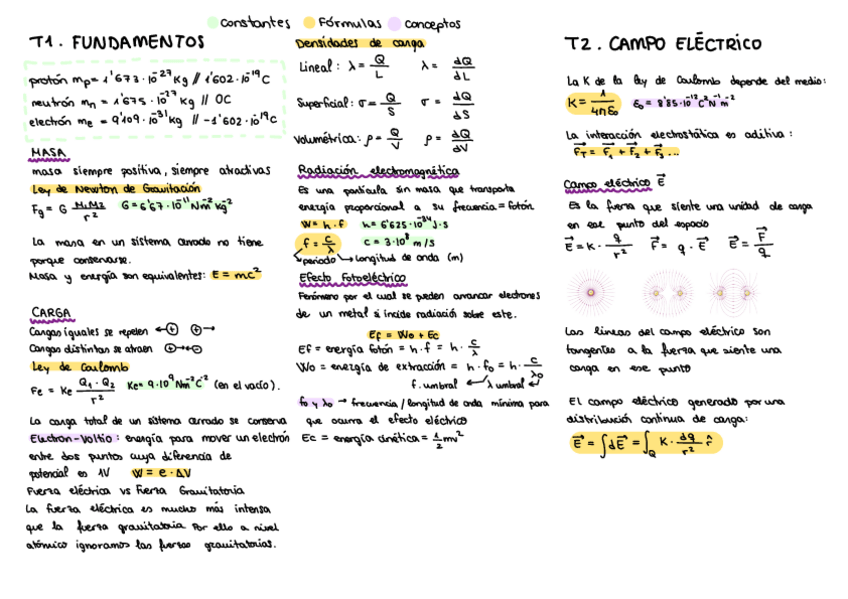 constantes Fórmulas conceptos
T1. FUNDAMENTOS
protón mp = 1'673·10⁻²⁷ Kg // 1'602·10⁻¹⁹ C
neutrón mn = 1'675·10⁻²⁷ Kg // 0C
electrón me = 9'109·10⁻³¹ Kg // -1'602·10⁻¹⁹ C
MASA
masa siempre positiva, siempre atractivas
Ley de Newton de Gravitación
Fg = G M1M2/r² G = 6'67·10⁻¹¹ Nm²kg⁻²
La masa en un sistema cerrado no tiene
porque conservarse.
Masa y energía son equivalentes: E = mc²
CARGA
Cargas iguales se repelen ←⊕ ⊕→
Cargas distintas se atraen ⊕→←⊖
Ley de Coulomb
Fe = Ke Q1·Q2/r² Ke = 9·10⁹ Nm²C⁻² (en el vacío).
La carga total de un sistema cerrado se conserva
Electron-Voltio: energía para mover un electrón
entre dos puntos cuya diferencia de
potencial es 1V W = e·ΔV
Fuerza eléctrica vs Fuerza Gravitatoria
La fuerza eléctrica es mucho más intensa
que la fuerza gravitatoria Por ello a nivel
atómico ignoramos las fuerzas gravitatorias.
Densidades de carga
Lineal: λ = Q/L λ = dQ/dL
Superficial: σ = Q/S σ = dQ/dS
Volumétrica: ρ = Q/V ρ = dQ/dV
Radiación electromagnética
Es una partícula sin masa que transporta
energía proporcional a su frecuencia = fotón.
W = h·f h = 6'625·10⁻³⁴ J·s
f = c/λ c = 3·10⁸ m/s
periodo longitud de onda (m)
Efecto Fotoeléctrico
Fenómeno por el cual se pueden arrancar electrones
de un metal si incide radiación sobre este.
Ef = Wo + Ec
Ef = energía fotón = h·f = h·c/λ
Wo = energía de extracción = h·fo = h·c/λo
f. umbral λ umbral
fo y λo → frecuencia/longitud de onda mínima para
que ocurra el efecto eléctrico
Ec = energía cinética = 1/2 mv²
T2. CAMPO ELÉCTRICO
La K de la ley de Coulomb depende del medio:
K = 1/4πε0 ε0 = 8'85·10⁻¹² C²N⁻¹m⁻²
La interacción electrostática es aditiva:
F⃗T = F⃗1 + F⃗2 + F⃗3 ...
Campo eléctrico E⃗
Es la fuerza que siente una unidad de carga
en ese punto del espacio
E⃗ = K·q/r² F⃗ = q·E⃗ E⃗ = F⃗/q
Las líneas del campo eléctrico son
tangentes a la fuerza que siente una
carga en ese punto
El campo eléctrico generado por una
distribución continua de carga:
E⃗ = ∫dE⃗ = ∫Q K·dq/r² r̂